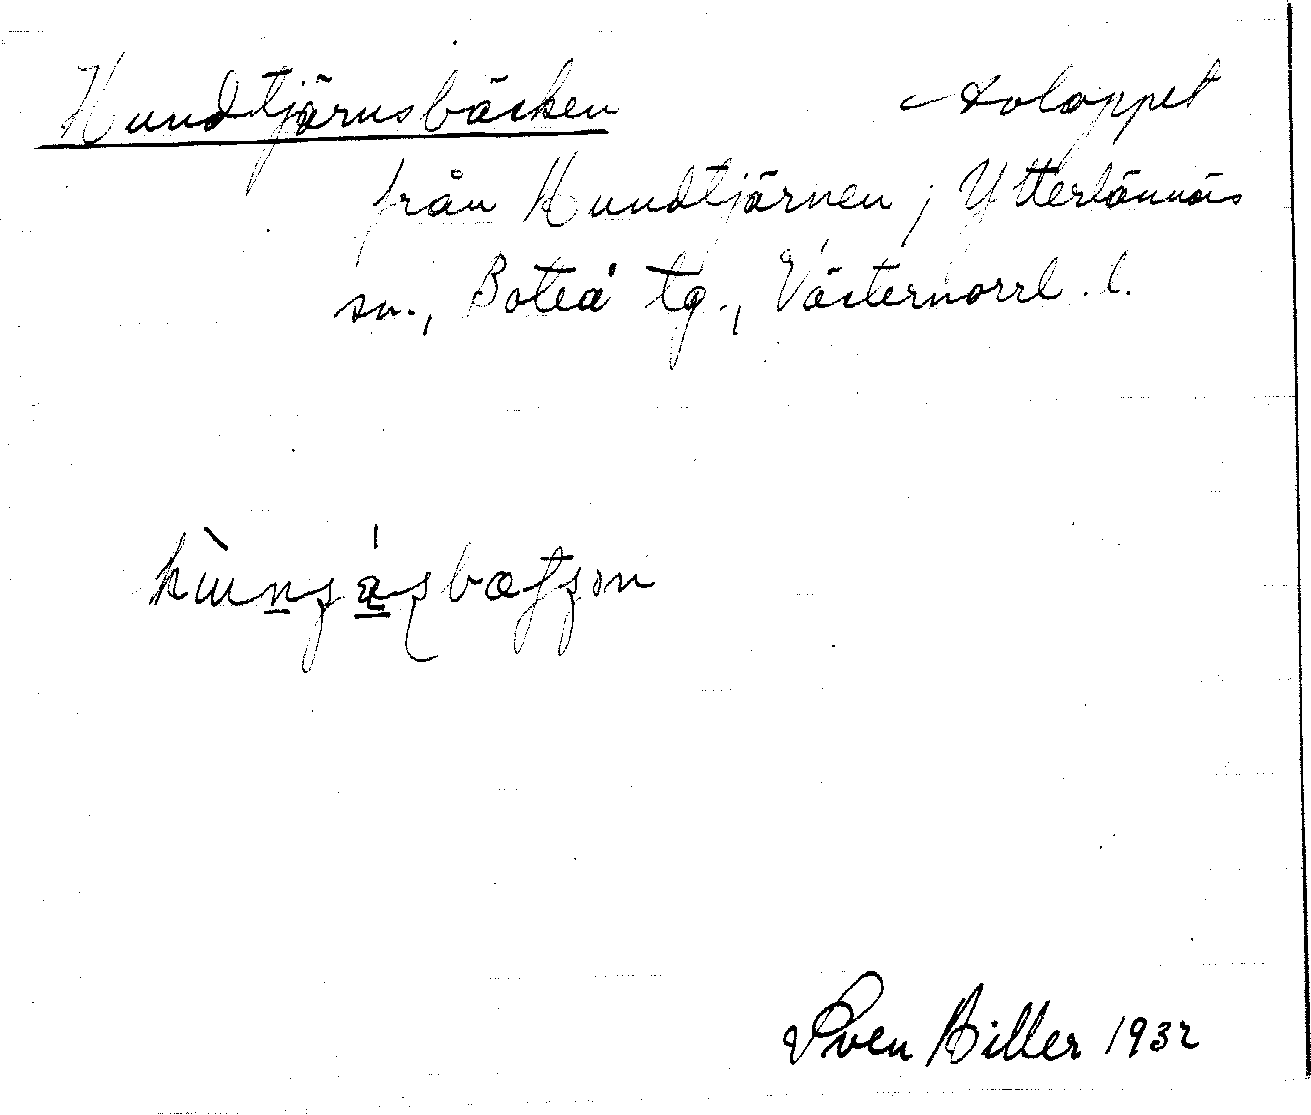 Hundtjärnsbäcken Avloppet
från Hundtjärnen, Ytterlännäs
sn., Boteå tg., Västernorrl. l.
Sven Hiller 1932